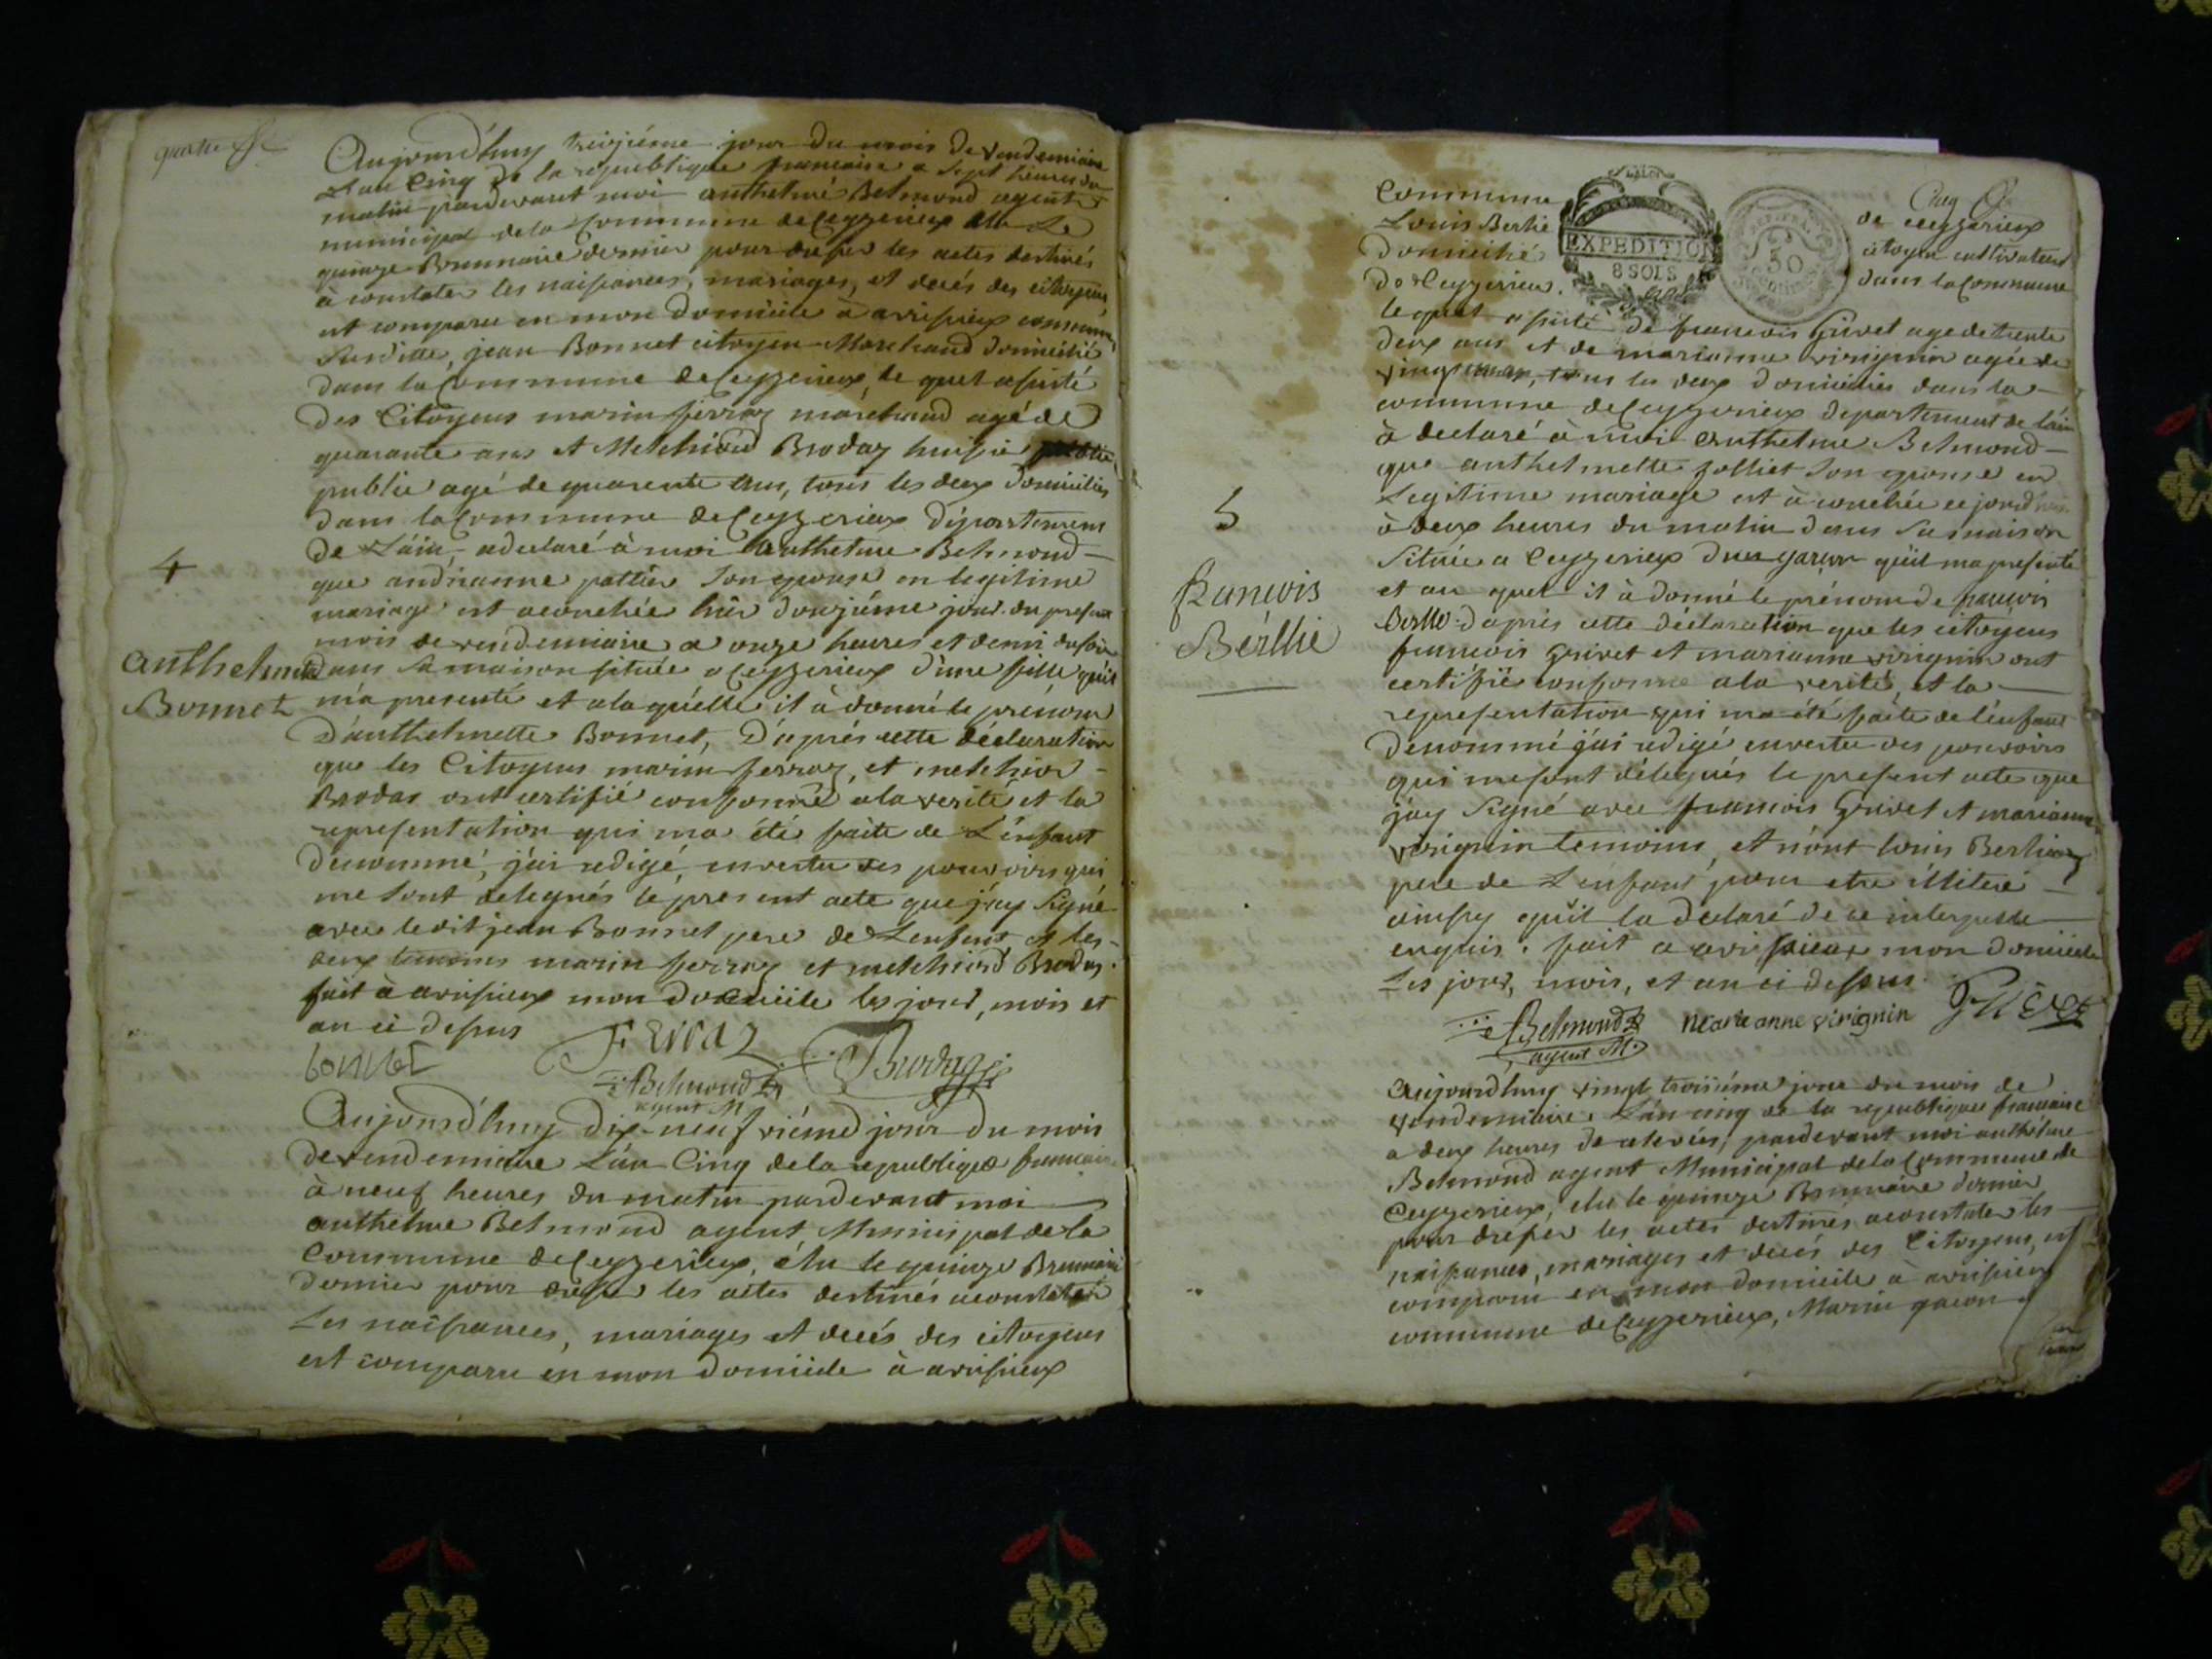 quatre
Aujourd'huy treizième jour du mois de vendemiaire
L'an Cinq de la republique francaise a sept heures du
matin pardevant moi anthelme Belmond agent
municipal de la Commune de Ceyzerieux élu Le
quinze Brumaire dernier pour dresser les actes destinés
à constater les naissances, mariages, et decés des citoyens
est comparu en mon domicile à avrissieux commune
Susditte, jean Bonnet citoyen Marchand domicilié
dans la Commune de Ceyzerieux, le quel assisté
des Citoyens marin ferraz marchand agé de
quarante ans et Melchiord Brodaz huissié
public agé de quarente ans, tous les deux domiciliés
dans la Commune de Ceyzerieux département
de L'áin, a declaré à moi Anthelme Belmond
que andrianne pottier Son epouse en legitime
mariage est acouchée hiér douzjéme jour du present
mois de vendemiaire a onze heures et demi du soir
dans sa maison située a Ceyzerieux d'une fille qu'il
m'a presenté et a laquélle il à donné le prénom
D'anthelmette Bonnet, D'aprés cette déclaration
que les Citoyens marin ferraz, et melchior
Brodaz ont certifié conforme a la verité et la
representation qui ma été faite de L'énfant
denommé, j'ai redigé, en vertu des pouvoirs qui
me sont delegués le present acte que j'ay Signé
avec le dit jean Bonnet pere de Lenfant et les
deux temoins marin ferraz et melchiord Brodaz.
fait à avrissieux mon domicile les jour, mois et
an ci dessus
4
anthelmette
Bonnet
bonnet
Ferraz
Brodaz
Belmond
agent M
Aujourd'huy dix-neufviéme jour du mois
de vendemiaire L'án Cinq de la republique francaise
à neuf heures du matin pardevant moi
anthelme Belmond agent Municipal de la
Commune de Ceyzerieux, élu le quinze Brumaire
dernier pour dresser les actes destinés a constater
Les naissances, mariages et decés des citoyens
est comparu en mon domicile à avrissieux
Cinq
Commune de Ceyzerieux
Louis Berlie citoyen cultivateur
Domicilié dans la Commune
de Ceyzerieu.
EXPEDITION
8 SOLS
50
lequel assisté de francois Grivet age de trente
deux ans et de marianne virignin agée de
vingt ans, tous les deux domiciliés dans la
commune de Ceyzerieux departement de l'áin
à declaré à moi Anthelme Belmond
que anthelmette folliet Son epouse en
Legitime mariage est à couchée ce jourd'hui
à deux heures du matin dans sa maison
Située a Ceyzerieux d'un garcon qu'il ma presenté
et au quel il à donné le prénom de francois
Berlie d'aprés cette déclaration que les citoyens
francois Grivet et marianne virignin ont
certifié conforme a la verité, et la
representation qui ma été faite de l'énfant
denommé j'ai redigé en vertu des pouvoirs
qui me sont délegués le present acte que
j'ay Signé avec francois Grivet et marianne
virignin temoins, et n'ont louis Berlie
pere de L'enfant pour etre illiteré
ainsy qu'il la declaré de ce interpellé
enquis. fait a avrissieux mon domicile
Les jour, mois, et an ci dessus.
5
francois
Berllie
Belmond
agent M.
Marie anne virignin
Grivet
Aujourdhuy vingt troisiéme jour du mois de
vendemiaire. L'án cinq de la republique francaise
a deux heures de relevée, pardevant moi anthelme
Belmond agent Municipal de la Commune de
Ceyzerieux, élu le quinze Brumaire dernier
pour dresser les actes destinés a constater les
naissances, mariages et decés des Citoyens, est
comparu en mon domicile à avrissieux
commune de Ceyzerieux, Marin